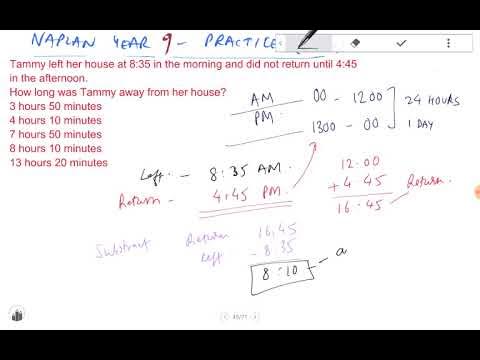 NAPLAN YEAR 9 - PRACTICE
Tammy left her house at 8:35 in the morning and did not return until 4:45
in the afternoon.
How long was Tammy away from her house?
3 hours 50 minutes
4 hours 10 minutes
7 hours 50 minutes
8 hours 10 minutes
13 hours 20 minutes
AM 00 - 1200
PM. 1300 - 00
24 HOURS
1 DAY
Left. - 8:35 AM.
Return - 4:45 PM.
12:00
+ 4.45
16.45 Return.
Subtract Return 16.45
Left - 8.35
8:10 - a